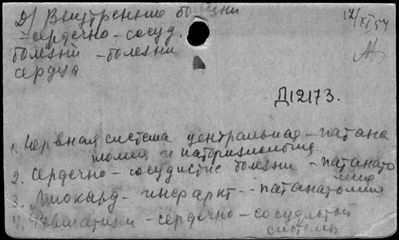 Д/ Внутренние болезни
- сердечно - сосуд.
болезни - болезни
сердца
12/XI 54
Д12173.
1. Нервная система центральная - патана
томия и патофизиология
2. Сердечно - сосудистые болезни - патанато
мия
3. Миокард - инфаркт - патанатомия
4. Ревматизм - сердечно - сосудистой
системы